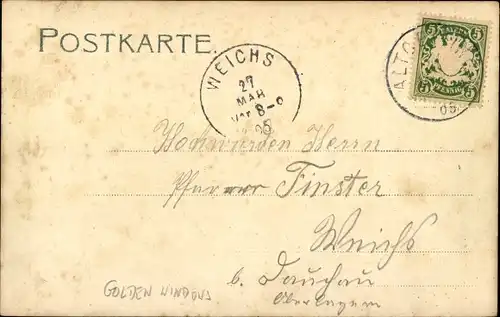 POSTKARTE.
WEICHS
27
MAR
Vor 8-9
05
ALTO
5 5
5 PFENNIG 5
05
Hochwürden Herrn
Pfarrer Finster
Weichs
b. Dauchau
Oberbayern
GOLDEN WINDOWS